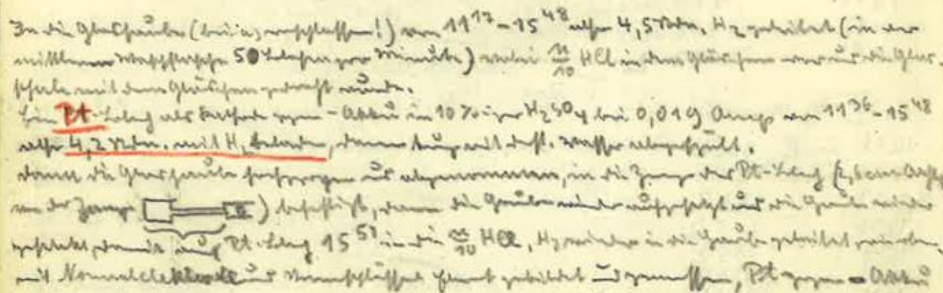 In die Glashaube (bei a, verschlossen!) von 11¹⁷–15⁴⁸ also 4,5 Stdn. H₂ geleitet (in der
mittleren Waschflasche 50 Blasen pro Minute) wobei n/10 HCl in dem Gläschen war und die Glas-
schale mit dem Gläschen gedreht wurde.
Ein Pt-Blech als Kathode gegen – Akku in 10%iger H₂SO₄ bei 0,019 Amp von 11³⁶–15⁴⁸
also 4,2 Stdn. mit H₂ beladen, dann kurz mit dest. Wasser abgespült.
dann die Glashaube und abgenommen, in die Zange das Pt-Blech
an der Zange ) befestigt, dann die Haube wieder aufgesetzt und die Haube wieder
gesenkt, damit Pt-Blech 15⁵¹ in die n/10 HCl, H₂ wieder in die Haube geleitet, wie oben,
mit Normalelektrode und Stromschlüssel Element gebildet und gemessen, Pt gegen – Akku